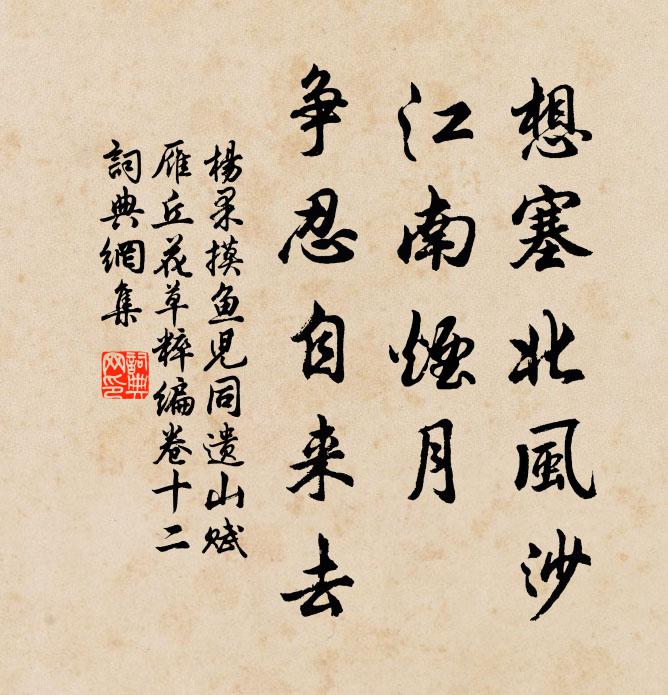 想塞北風沙
江南煙月
争忍自来去
楊果摸魚児同遺山賦
雁丘花草粹編卷十二
詞典網集
詞典网印